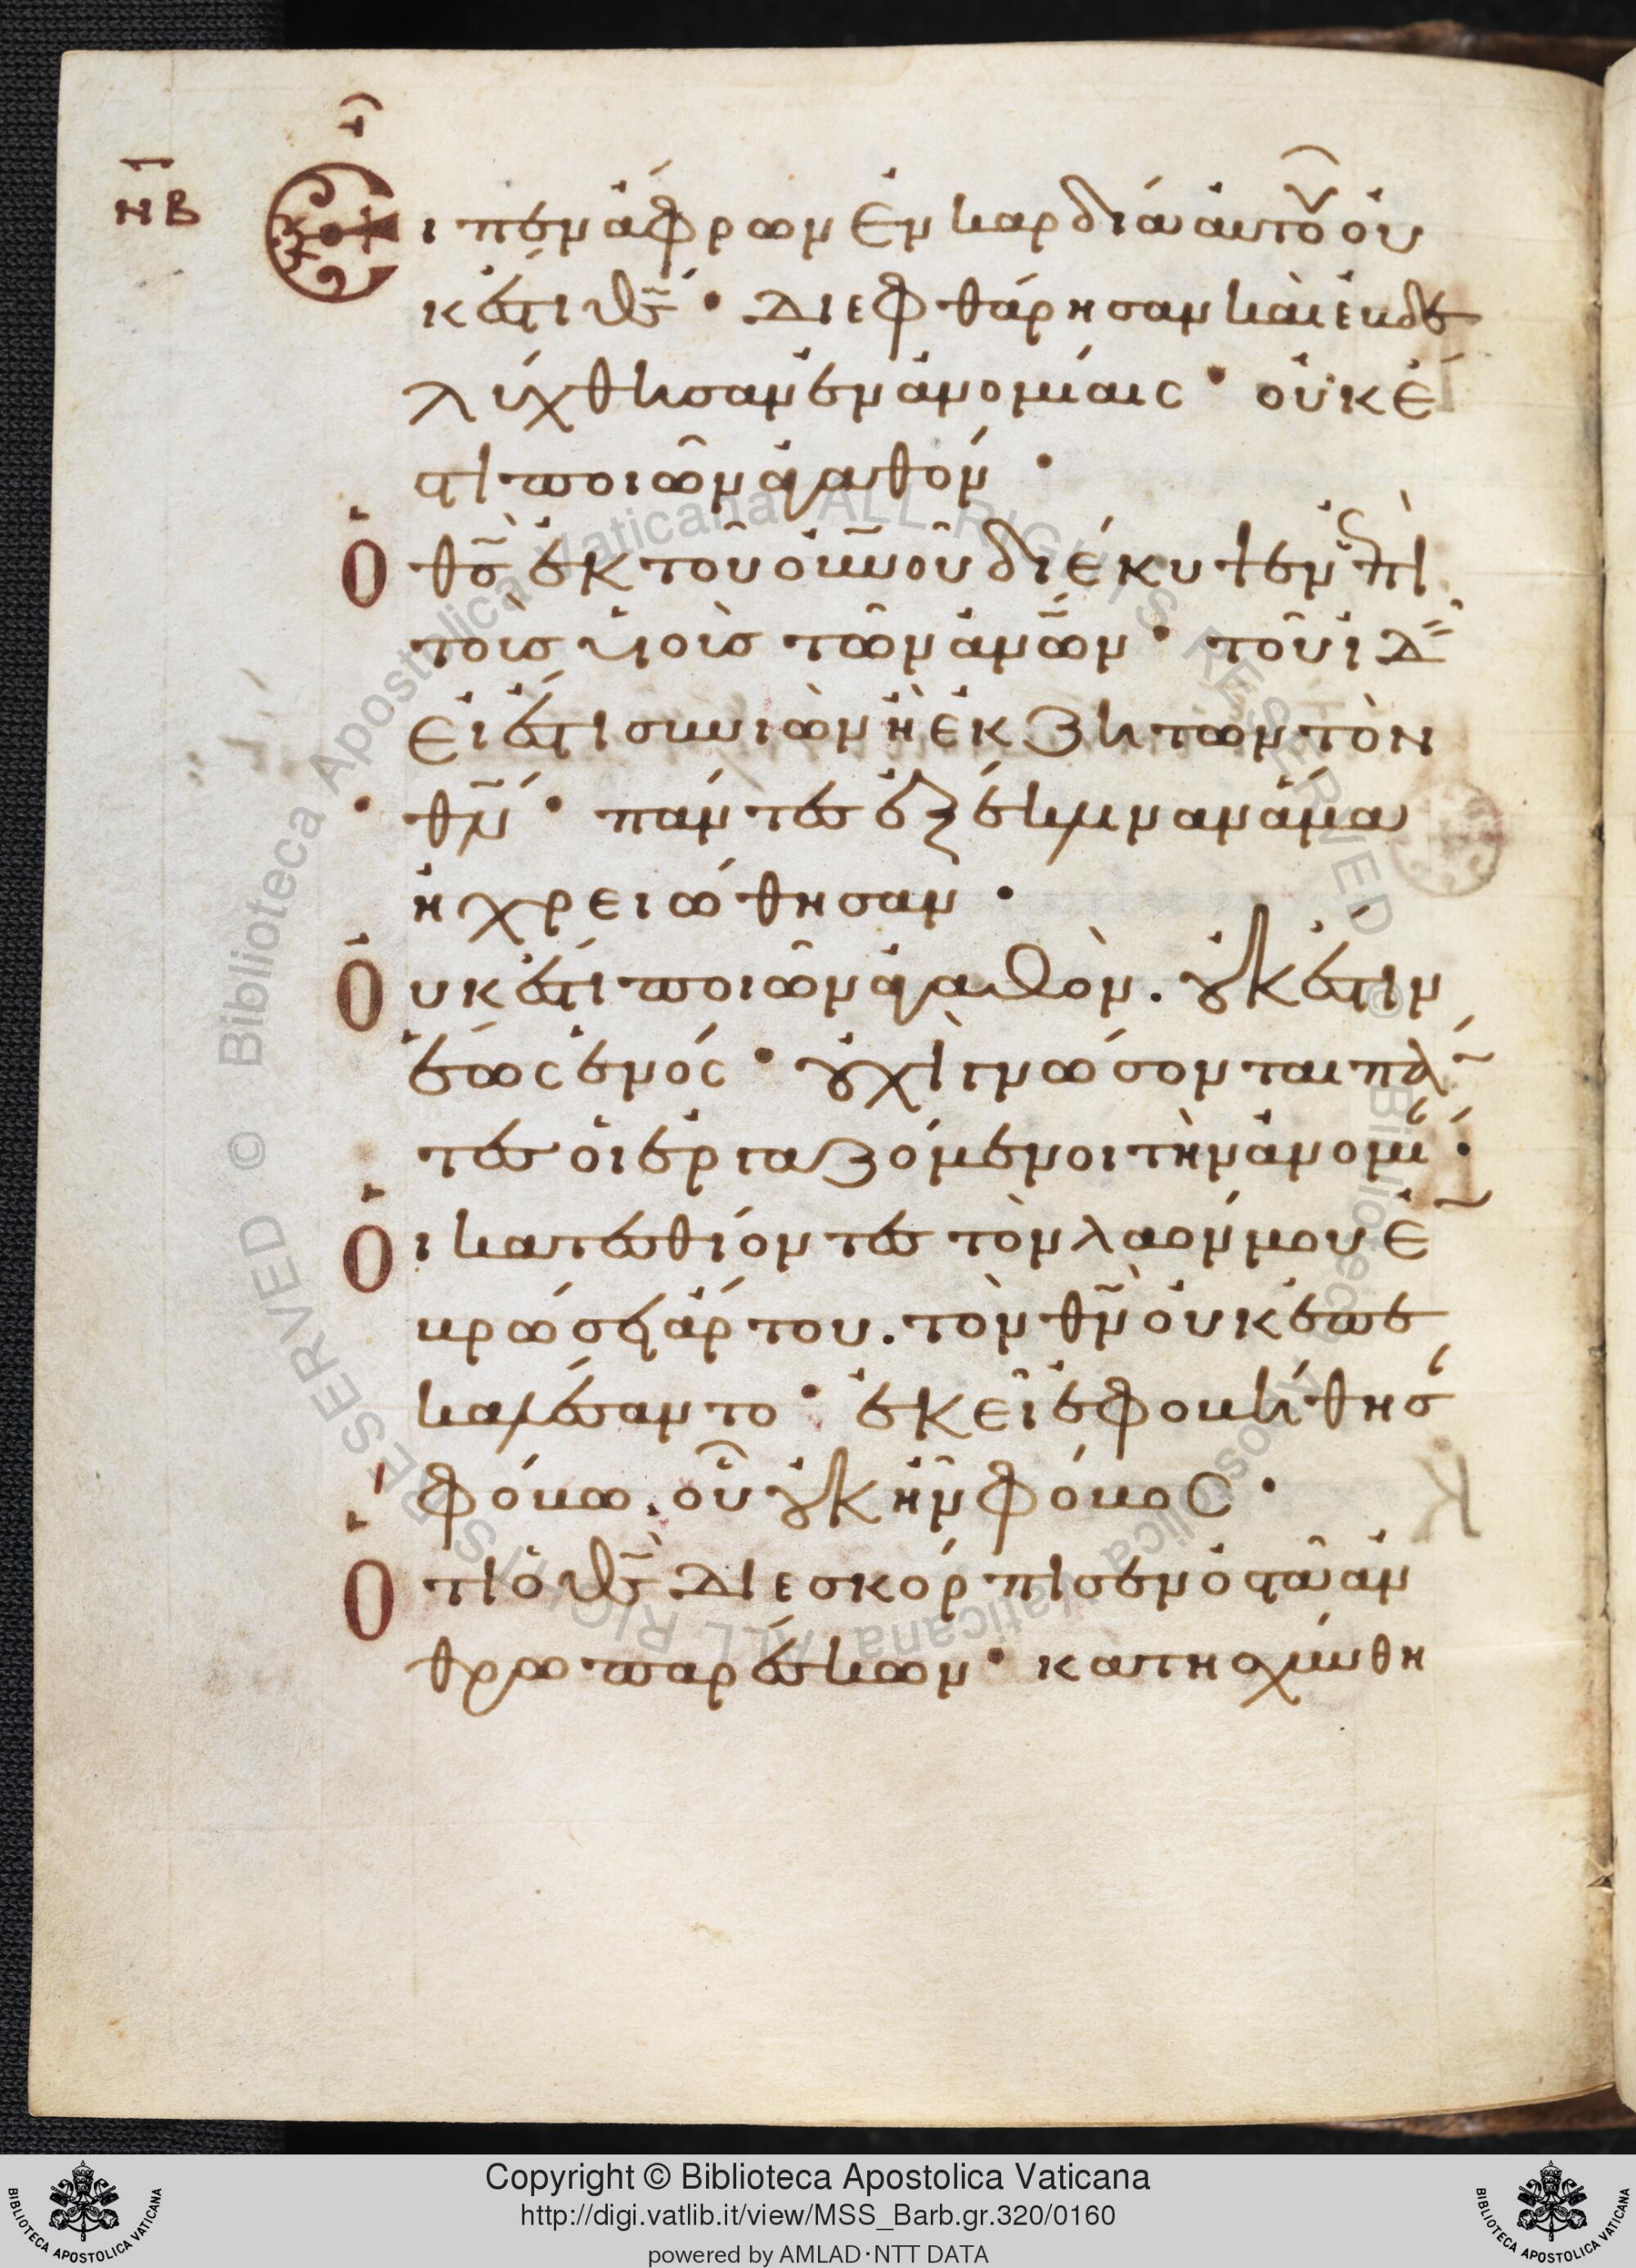 ΝΒ
Εἶπεν ἄφρων ἐν καρδία αὐτοῦ οὐ
κ ἔστι θς· Διεφθάρησαν καὶ ἐβδε
λύχθησαν ἐν ἀνομίαις· οὐκ ἔ
στι ποιῶν ἀγαθόν·
Ὁ θς ἐκ τοῦ οὐνοῦ διέκυψεν ἐπὶ
τοὺς υἱοὺς τῶν ἀνων· τοῦ ἰδ
εῖ εἰ ἔστι συνιὼν ἢ ἐκζητῶν τὸν
θν· πάντες ἐξέκλιναν ἅμα
ἠχρειώθησαν·
Οὐκ ἔστι ποιῶν ἀγαθὸν. οὐκ ἔστιν
ἕως ἑνός· οὐχὶ γνώσονται πά
τες οἱ ἐργαζόμενοι τὴν ἀνομί·
Οἱ κατεσθίοντες τὸν λαόν μου ἐ
βρώσει ἄρτου. τὸν θν οὐκ ἐπε
καλέσαντο· ἐκεῖ ἐφοβήθησ
φόβω, οὗ οὐκ ἦν φόβος·
Ὅτι ὁ θς Διεσκόρπισεν ὀστᾶ ἀν
θρωπαρέσκων· κατησχύνθη
Copyright © Biblioteca Apostolica Vaticana
http://digi.vatlib.it/view/MSS_Barb.gr.320/0160
powered by AMLAD·NTT DATA
BIBLIOTECA APOSTOLICA VATICANA
BIBLIOTECA APOSTOLICA VATICANA
© Biblioteca Apostolica Vaticana ALL RIGHTS RESERVED
© Biblioteca Apostolica Vaticana ALL RIGHTS RESERVED